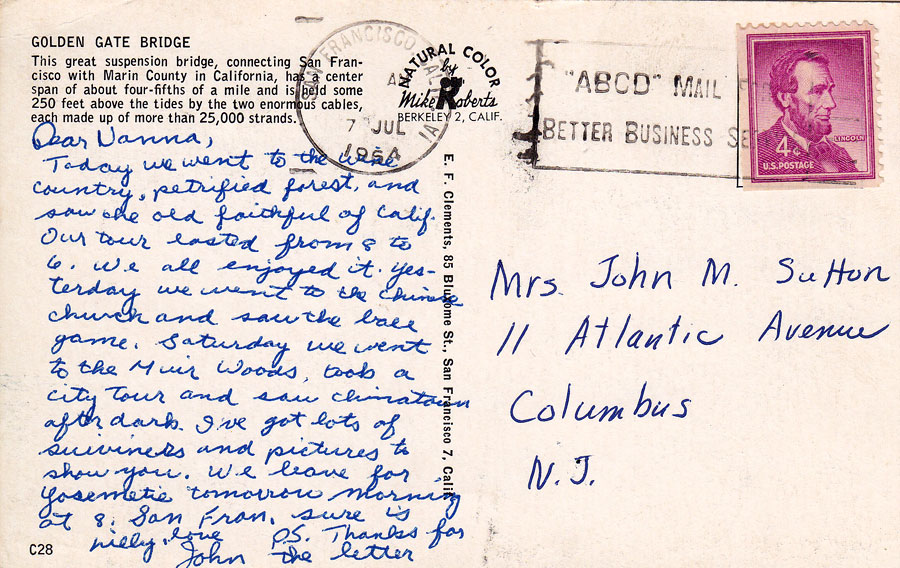 GOLDEN GATE BRIDGE
This great suspension bridge, connecting San Fran-
cisco with Marin County in California, has a center
span of about four-fifths of a mile and is held some
250 feet above the tides by the two enormous cables,
each made up of more than 25,000 strands.
Dear Nanna,
Today we went to the wine
country, petrified forest, and
saw the old faithful of Calif.
Our tour lasted from 8 to
6. We all enjoyed it. Yes-
terday we went to the Chinese
church and saw the ball
game. Saturday we went
to the Muir Woods, took a
city tour and saw chinatown
after dark. I've got lots of
suiviners and pictures to
show you. We leave for
Yosemetie tomorrow morning
at 8. San Fran. sure is
hilly. love
John
P.S. Thanks for
the letter
C28
NATURAL COLOR
by
Mike Roberts
BERKELEY 2, CALIF.
E. F. Clements, 85 Bluxome St., San Francisco 7, Calif.
SAN FRANCISCO, CALIF.
7 JUL
1964
"ABCD" MAIL
BETTER BUSINESS SE
LINCOLN
4¢
U.S. POSTAGE
Mrs. John M. Sutton
11 Atlantic Avenue
Columbus
N.J.